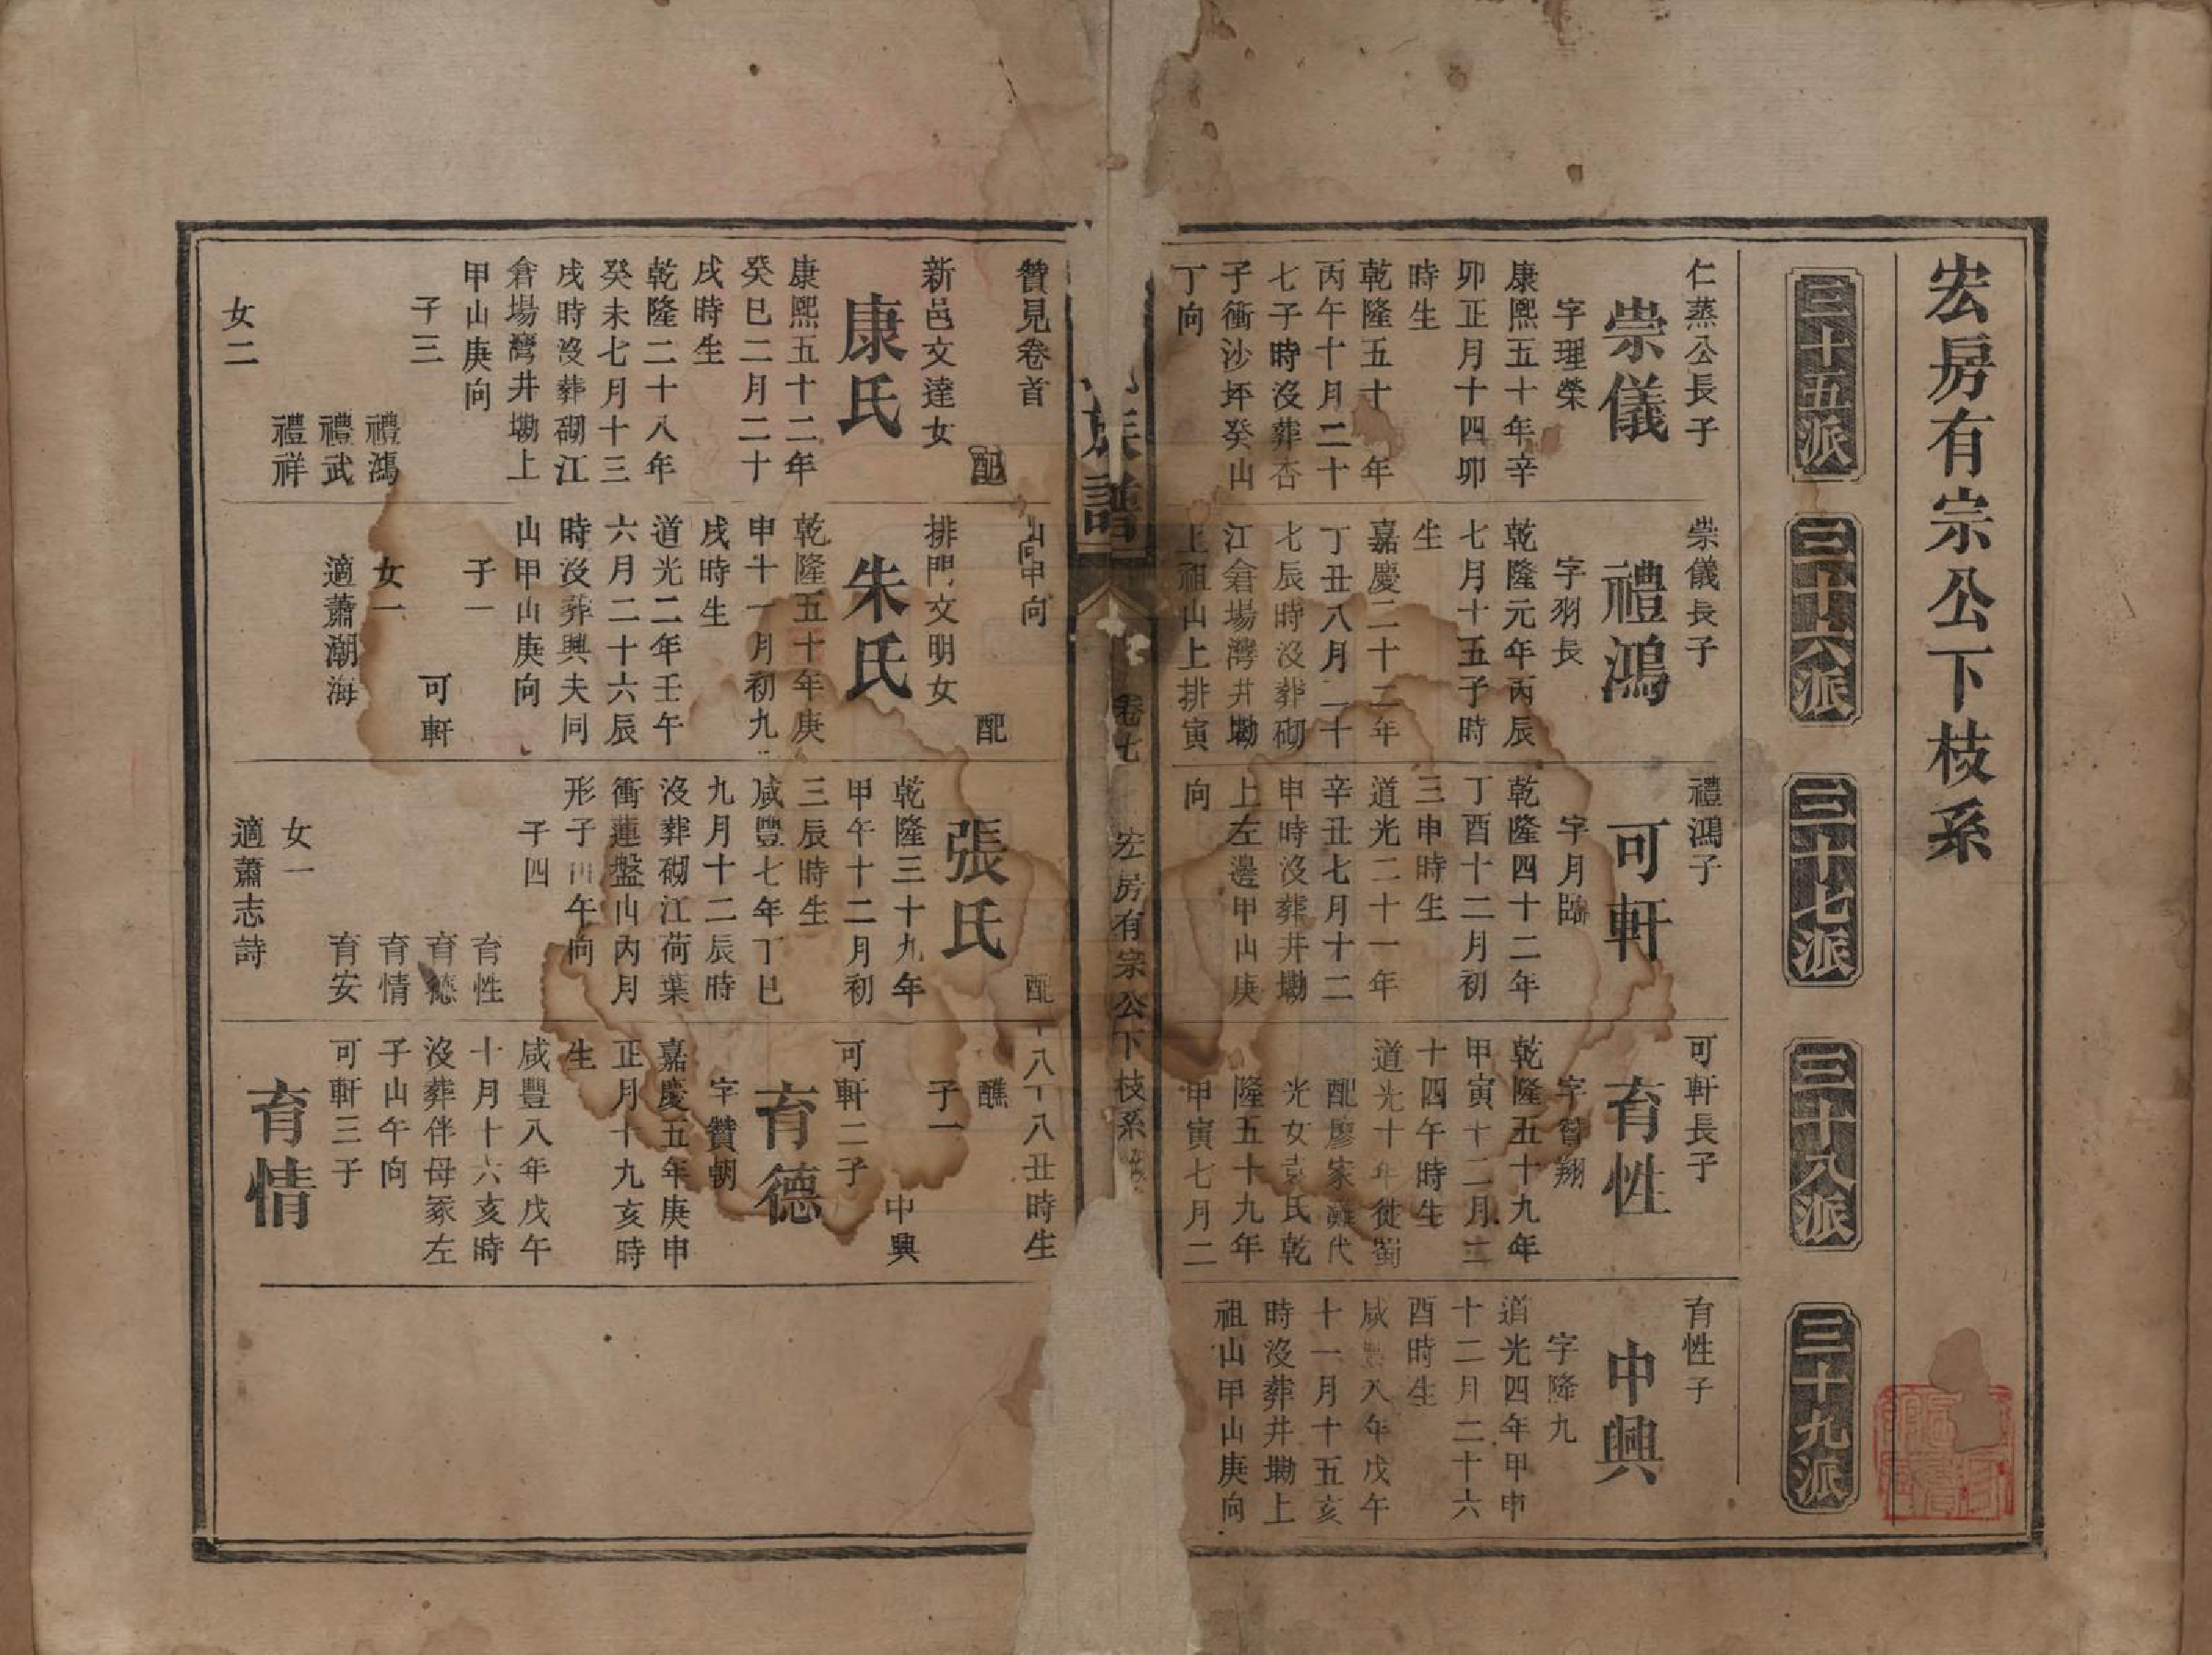 宏房有宗公下枝系
三十五派
三十六派
三十七派
三十八派
三十九派
仁蒸公長子
崇儀
字理榮
康熙五十年辛
卯正月十四卯
時生
乾隆五十一年
丙午十月二十
七子時沒葬杏
子衝沙坪癸山
丁向
贊見卷首
配
新邑文達女
康氏
康熙五十二年
癸巳二月二十
戌時生
乾隆二十八年
癸未七月十三
戌時沒葬砌江
倉場灣井塝上
甲山庚向
子三
禮鴻
禮武
禮祥
女二
崇儀長子
禮鴻
字羽長
乾隆元年丙辰
七月十五子時
生
嘉慶二十二年
丁丑八月二十
七辰時沒葬砌
江倉場灣井塝
上祖山上排寅
山申向
配
排門文明女
朱氏
乾隆五十年庚
申十一月初九
戌時生
道光二年壬午
六月二十六辰
時沒葬興夫同
山甲山庚向
子一
可軒
女一
適蕭潮海
禮鴻子
可軒
字月臨
乾隆四十二年
丁酉十二月初
三申時生
道光二十一年
辛丑七月十二
申時沒葬井塝
上左邊甲山庚
向
配
張氏
乾隆三十九年
甲午十二月初
三辰時生
咸豐七年丁巳
九月十二辰時
沒葬砌江荷葉
衝蓮盤山丙月
形子山午向
子四
育性
育德
育情
育安
女一
適蕭志詩
可軒長子
育性
字晉翔
乾隆五十九年
甲寅十二月二
十四午時生
道光十年徙蜀
配廖家灘代
光女袁氏乾
隆五十九年
甲寅七月二
十八丑時生
醮
子一
中興
可軒二子
育德
字贊朝
嘉慶五年庚申
正月十九亥時
生
咸豐八年戊午
十月十六亥時
沒葬伴母冢左
子山午向
可軒三子
育情
育性子
中興
字隆九
道光四年甲申
十二月二十六
酉時生
咸豐八年戊午
十一月十五亥
時沒葬井塝上
祖山甲山庚向
族譜
卷七
宏房有宗公下枝系